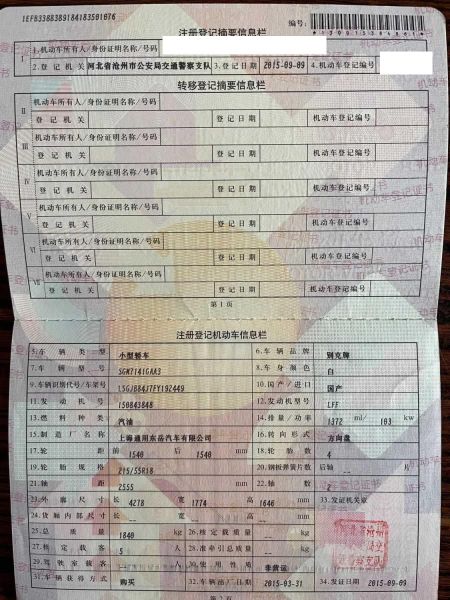 1EFB338B3B9184183501076
编号:
*130015384861*
注册登记摘要信息栏
I 1.机动车所有人/身份证明名称/号码
2.登记机关 河北省沧州市公安局交通警察支队 3.登记日期 2015-09-09 4.机动车登记编号
转移登记摘要信息栏
II 机动车所有人/身份证明名称/号码
登记机关 登记日期 机动车登记编号
III 机动车所有人/身份证明名称/号码
登记机关 登记日期 机动车登记编号
IV 机动车所有人/身份证明名称/号码
登记机关 登记日期 机动车登记编号
V 机动车所有人/身份证明名称/号码
登记机关 登记日期 机动车登记编号
VI 机动车所有人/身份证明名称/号码
登记机关 登记日期 机动车登记编号
VII 机动车所有人/身份证明名称/号码
登记机关 登记日期 机动车登记编号
第1页
注册登记机动车信息栏
5.车辆类型 小型轿车 6.车辆品牌 别克牌
7.车辆型号 SGM7141GAA3 8.车身颜色 白
9.车辆识别代号/车架号 LSGJB84J7FY192449 10.国产/进口 国产
11.发动机号 150843848 12.发动机型号 LFF
13.燃料种类 汽油 14.排量/功率 1372 ml/ 103 kw
15.制造厂名称 上海通用东岳汽车有限公司 16.转向形式 方向盘
17.轮距 前 1540 后 1540 mm 18.轮胎数 4
19.轮胎规格 215/55R18 20.钢板弹簧片数 后轴 -- 片
21.轴距 2555 mm 22.轴数 2
23.外廓尺寸 长 4278 宽 1774 高 1646 mm 33.发证机关章
24.货厢内部尺寸 长 -- 宽 -- 高 -- mm
25.总质量 1840 kg 26.核定载质量 -- kg
27.核定载客 5 人 28.准牵引总质量 -- kg
29.驾驶室载客 -- 人 30.使用性质 非营运
31.车辆获得方式 购买 32.车辆出厂日期 2015-03-31 34.发证日期 2015-09-09
第2页